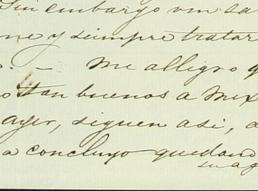 Sin embargo
ne y siempre tratar
Me allegro q
tan buenos a Mex
ayer, siguen asi, a
a concluyo quedand
su af